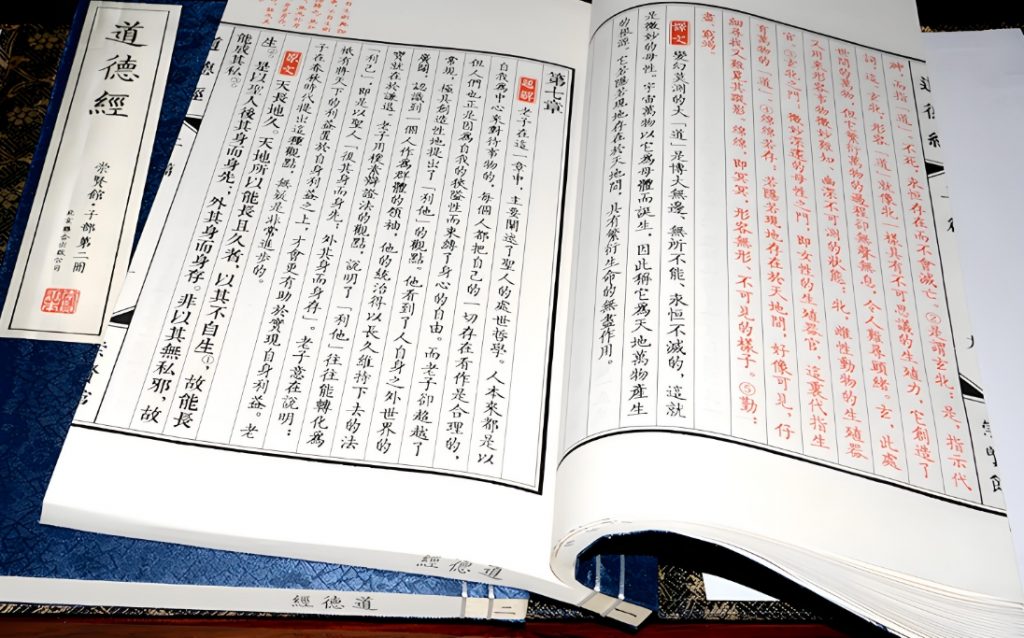 神，而指「道」不死，永恒存在而不會滅亡。②是謂玄牝：是，指示代
詞，這。玄牝，形容「道」就像牝一樣具有不可思議的生殖力，它創造了
世間的萬物，但它繁衍萬物的過程卻無聲無息，令人難尋頭緒。玄，此處
又用來形容事物微妙難知、幽深不可測的狀態；牝，雌性動物的生殖器
官。③玄牝之門：微妙深遠的母性之門，即女性的生殖器官，這裏代指生
育萬物的「道」。④綿綿若存：若隱若現地存在於天地間，好像可見，仔
細尋找又難覓其蹤影。綿綿，即冥冥，形容無形、不可見的樣子。⑤勤：
盡，
譯文 變幻莫測的大「道」是博大無邊、無所不能、永恒不滅的，這就
是微妙的母性。宇宙萬物以它為母體而誕生，因此稱它為天地萬物產生
的根源。它若隱若現地存在於天地間，具有繁衍生命的無盡作用。
第七章
題解 老子在這一章中，主要闡述了聖人的處世哲學。人本來都是以
自我為中心來對待事物的，每個人都把自己的一切存在看作是合理的，
但人們也正是因為自我的狹隘性而束縛了身心的自由。而老子卻超越了
常規，極具創造性地提出了「利他」的觀點。他看到了人自身之外世界的
廣闊，認識到一個人作為群體的領袖，他的統治得以長久維持下去的法
寶就在於謙退。老子用樸素辯證法的觀點，說明了「利他」往往能轉化為
「利己」，即是以聖人「後其身而身先；外其身而身存」。老子意在說明：
祇有將天下的利益置於自身利益之上，才會更有助於實現自身利益。老
子在春秋時代提出這種觀點，無疑是非常進步的。
原文 天長地久。天地所以能長且久者，以其不自生①，故能長
生②。是以聖人後其身而身先；外其身而身存。非以其無私邪，故
能成其私③。
道德經
崇賢館·子部第二冊
北京聯合出版公司
道德經
一
道德經
二